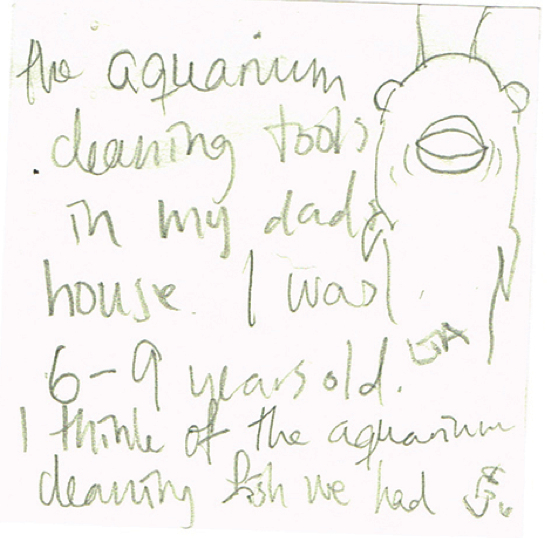 the aquarium
cleaning tools
in my dads
house. I was
6-9 years old.
I think of the aquarium
cleaning fish we had